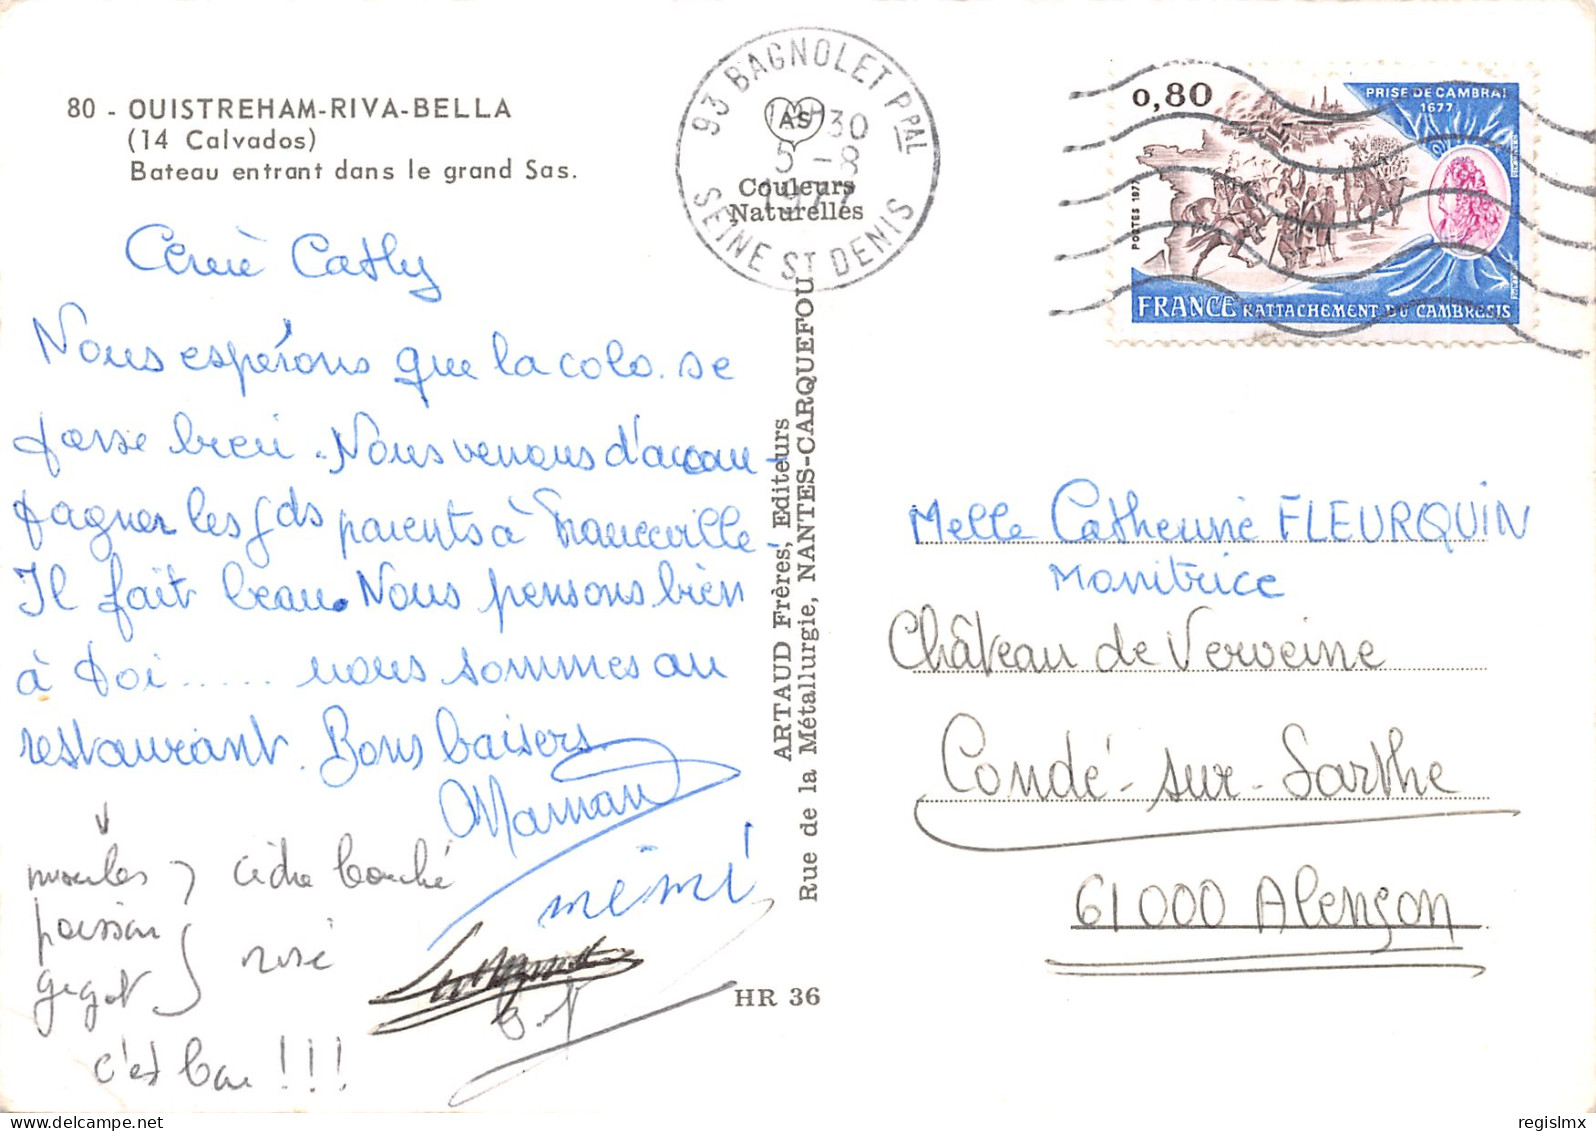 80 - OUISTREHAM-RIVA-BELLA
(14 Calvados)
Bateau entrant dans le grand Sas.
93 BAGNOLET PPAL
30
5 -8
1977
SEINE ST DENIS
AS
Couleurs
Naturelles
0,80
PRISE DE CAMBRAI
1677
POSTES 1977
FRANCE RATTACHEMENT DU CAMBRESIS
Cathy
Nous espérons que la colo. se
passe bien. Nous venons d'accom-
pagner les gds parents à
Il fait beau. Nous pensons bien
à toi ...... nous sommes au
restaurant. Bons baisers.
Maman
mémé
moules } cidre bouché
poisson
gigot } rosé
c'est bon !!!
ARTAUD Frères, Editeurs
Rue de la Métallurgie, NANTES-CARQUEFOU
HR 36
Melle Catherine FLEURQUIN
Monitrice
Château de Verveine
Condé-sur-Sarthe
61000 Alençon
regislmx